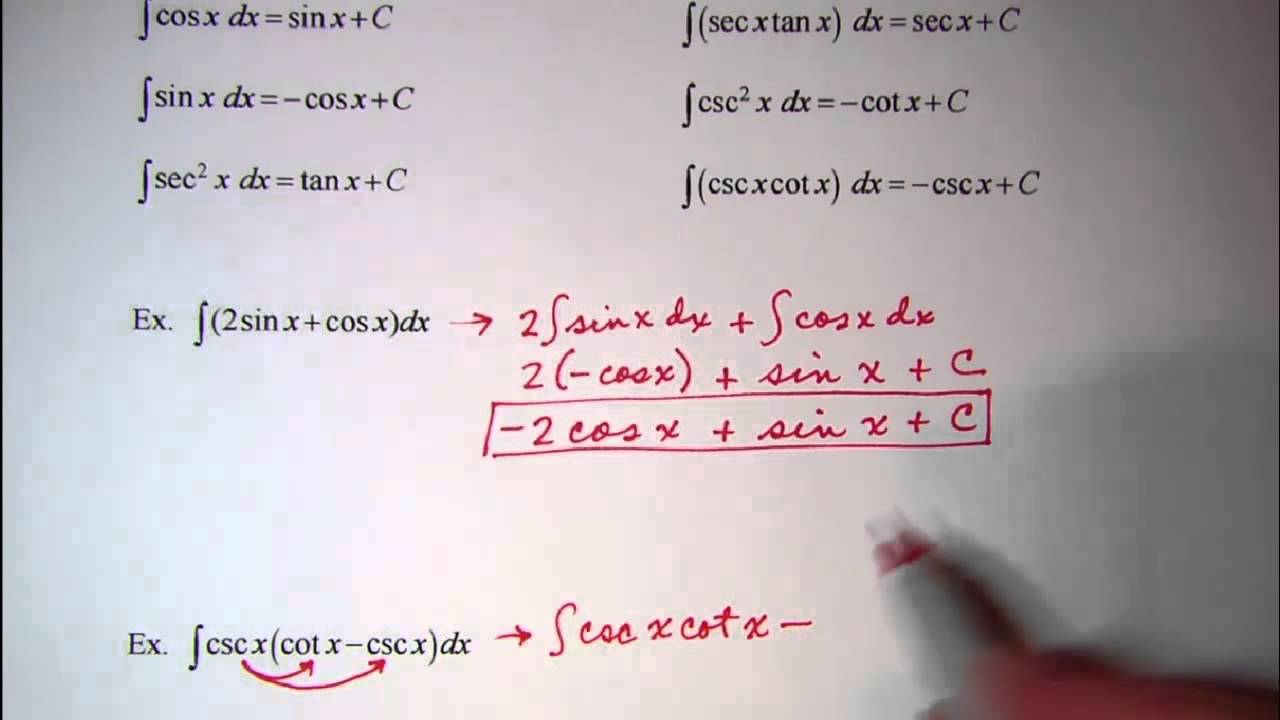 ∫cos x dx = sin x + C
∫(sec x tan x) dx = sec x + C
∫sin x dx = −cos x + C
∫csc² x dx = −cot x + C
∫sec² x dx = tan x + C
∫(csc x cot x) dx = −csc x + C
Ex. ∫(2sin x + cos x)dx → 2∫sin x dx + ∫cos x dx
2(−cos x) + sin x + C
−2 cos x + sin x + C
Ex. ∫csc x(cot x − csc x)dx → ∫csc x cot x −